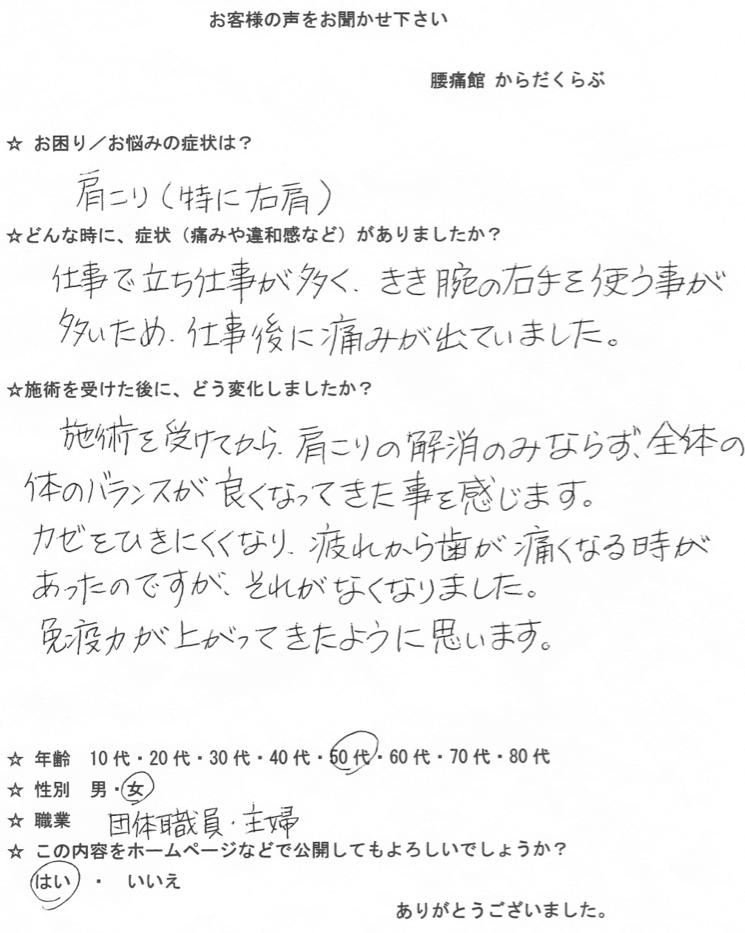 お客様の声をお聞かせ下さい
腰痛館 からだくらぶ
☆ お困り／お悩みの症状は？
肩こり（特に右肩）
☆どんな時に、症状（痛みや違和感など）がありましたか？
仕事で立ち仕事が多く、きき腕の右手を使う事が
多いため、仕事後に痛みが出ていました。
☆施術を受けた後に、どう変化しましたか？
施術を受けてから、肩こりの解消のみならず、全体の
体のバランスが良くなってきた事を感じます。
カゼをひきにくくなり、疲れから歯が痛くなる時が
あったのですが、それがなくなりました。
免疫力が上がってきたように思います。
☆ 年齢 10代・20代・30代・40代・50代・60代・70代・80代
☆ 性別 男・女
☆ 職業 団体職員・主婦
☆ この内容をホームページなどで公開してもよろしいでしょうか？
はい ・ いいえ
ありがとうございました。